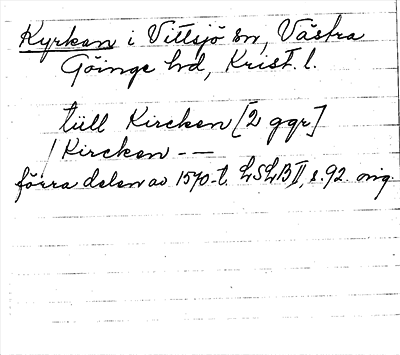 Kyrkan i Vittsjö sn, Västra
Göinge hd, Krist. l.
tiill Kircken [2 ggr]
/ Kircken --
förra delen av 1570-t. LSLB II, s. 92. orig.